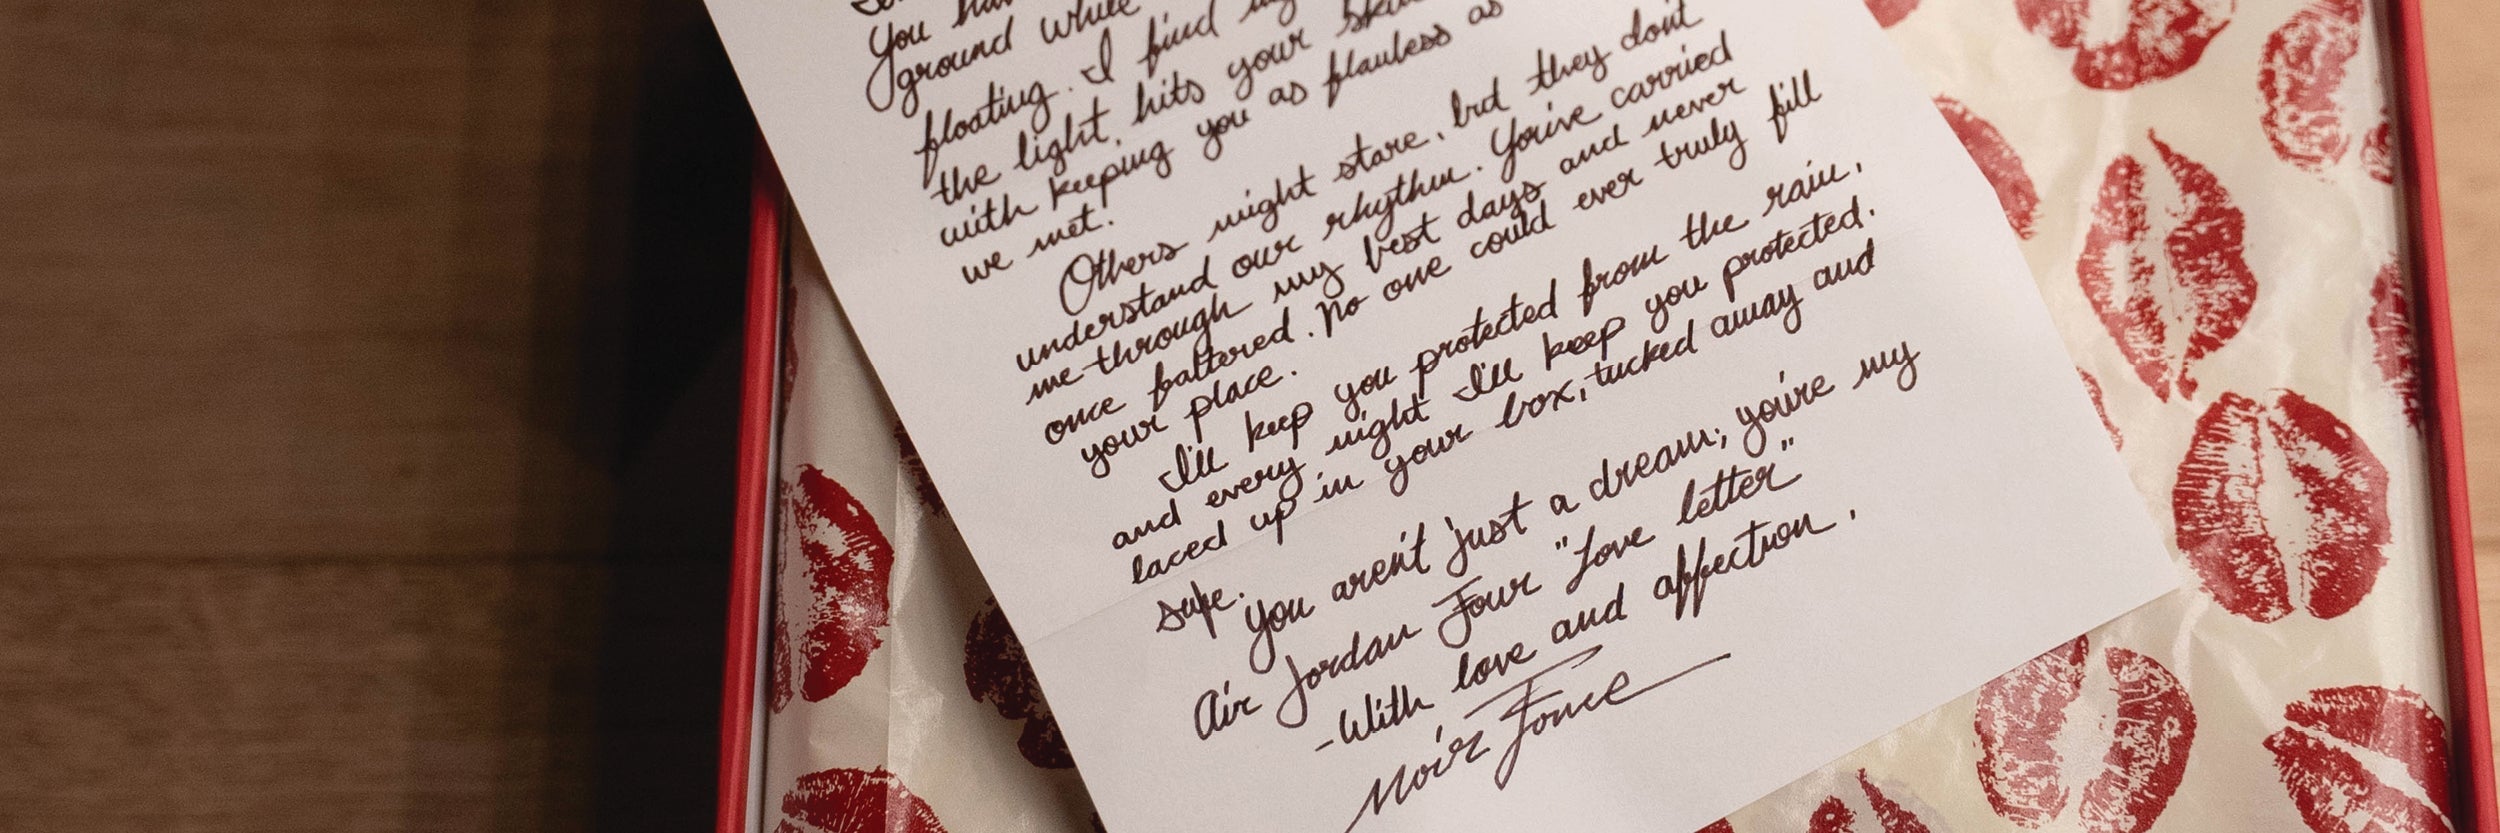 You
ground while
floating. I find
the light, hits your
with keeping you as flawless as
we met.
Others might stare, but they don't
understand our rhythm. You've carried
me through my best days and never
once faltered. No one could ever truly fill
your place.
I'll keep you protected from the rain,
and every night I'll keep you protected.
laced up in your box, tucked away and
safe.
You aren't just a dream; you're my
Air Jordan Four "Love letter"
-With love and affection,
Noir Fonce